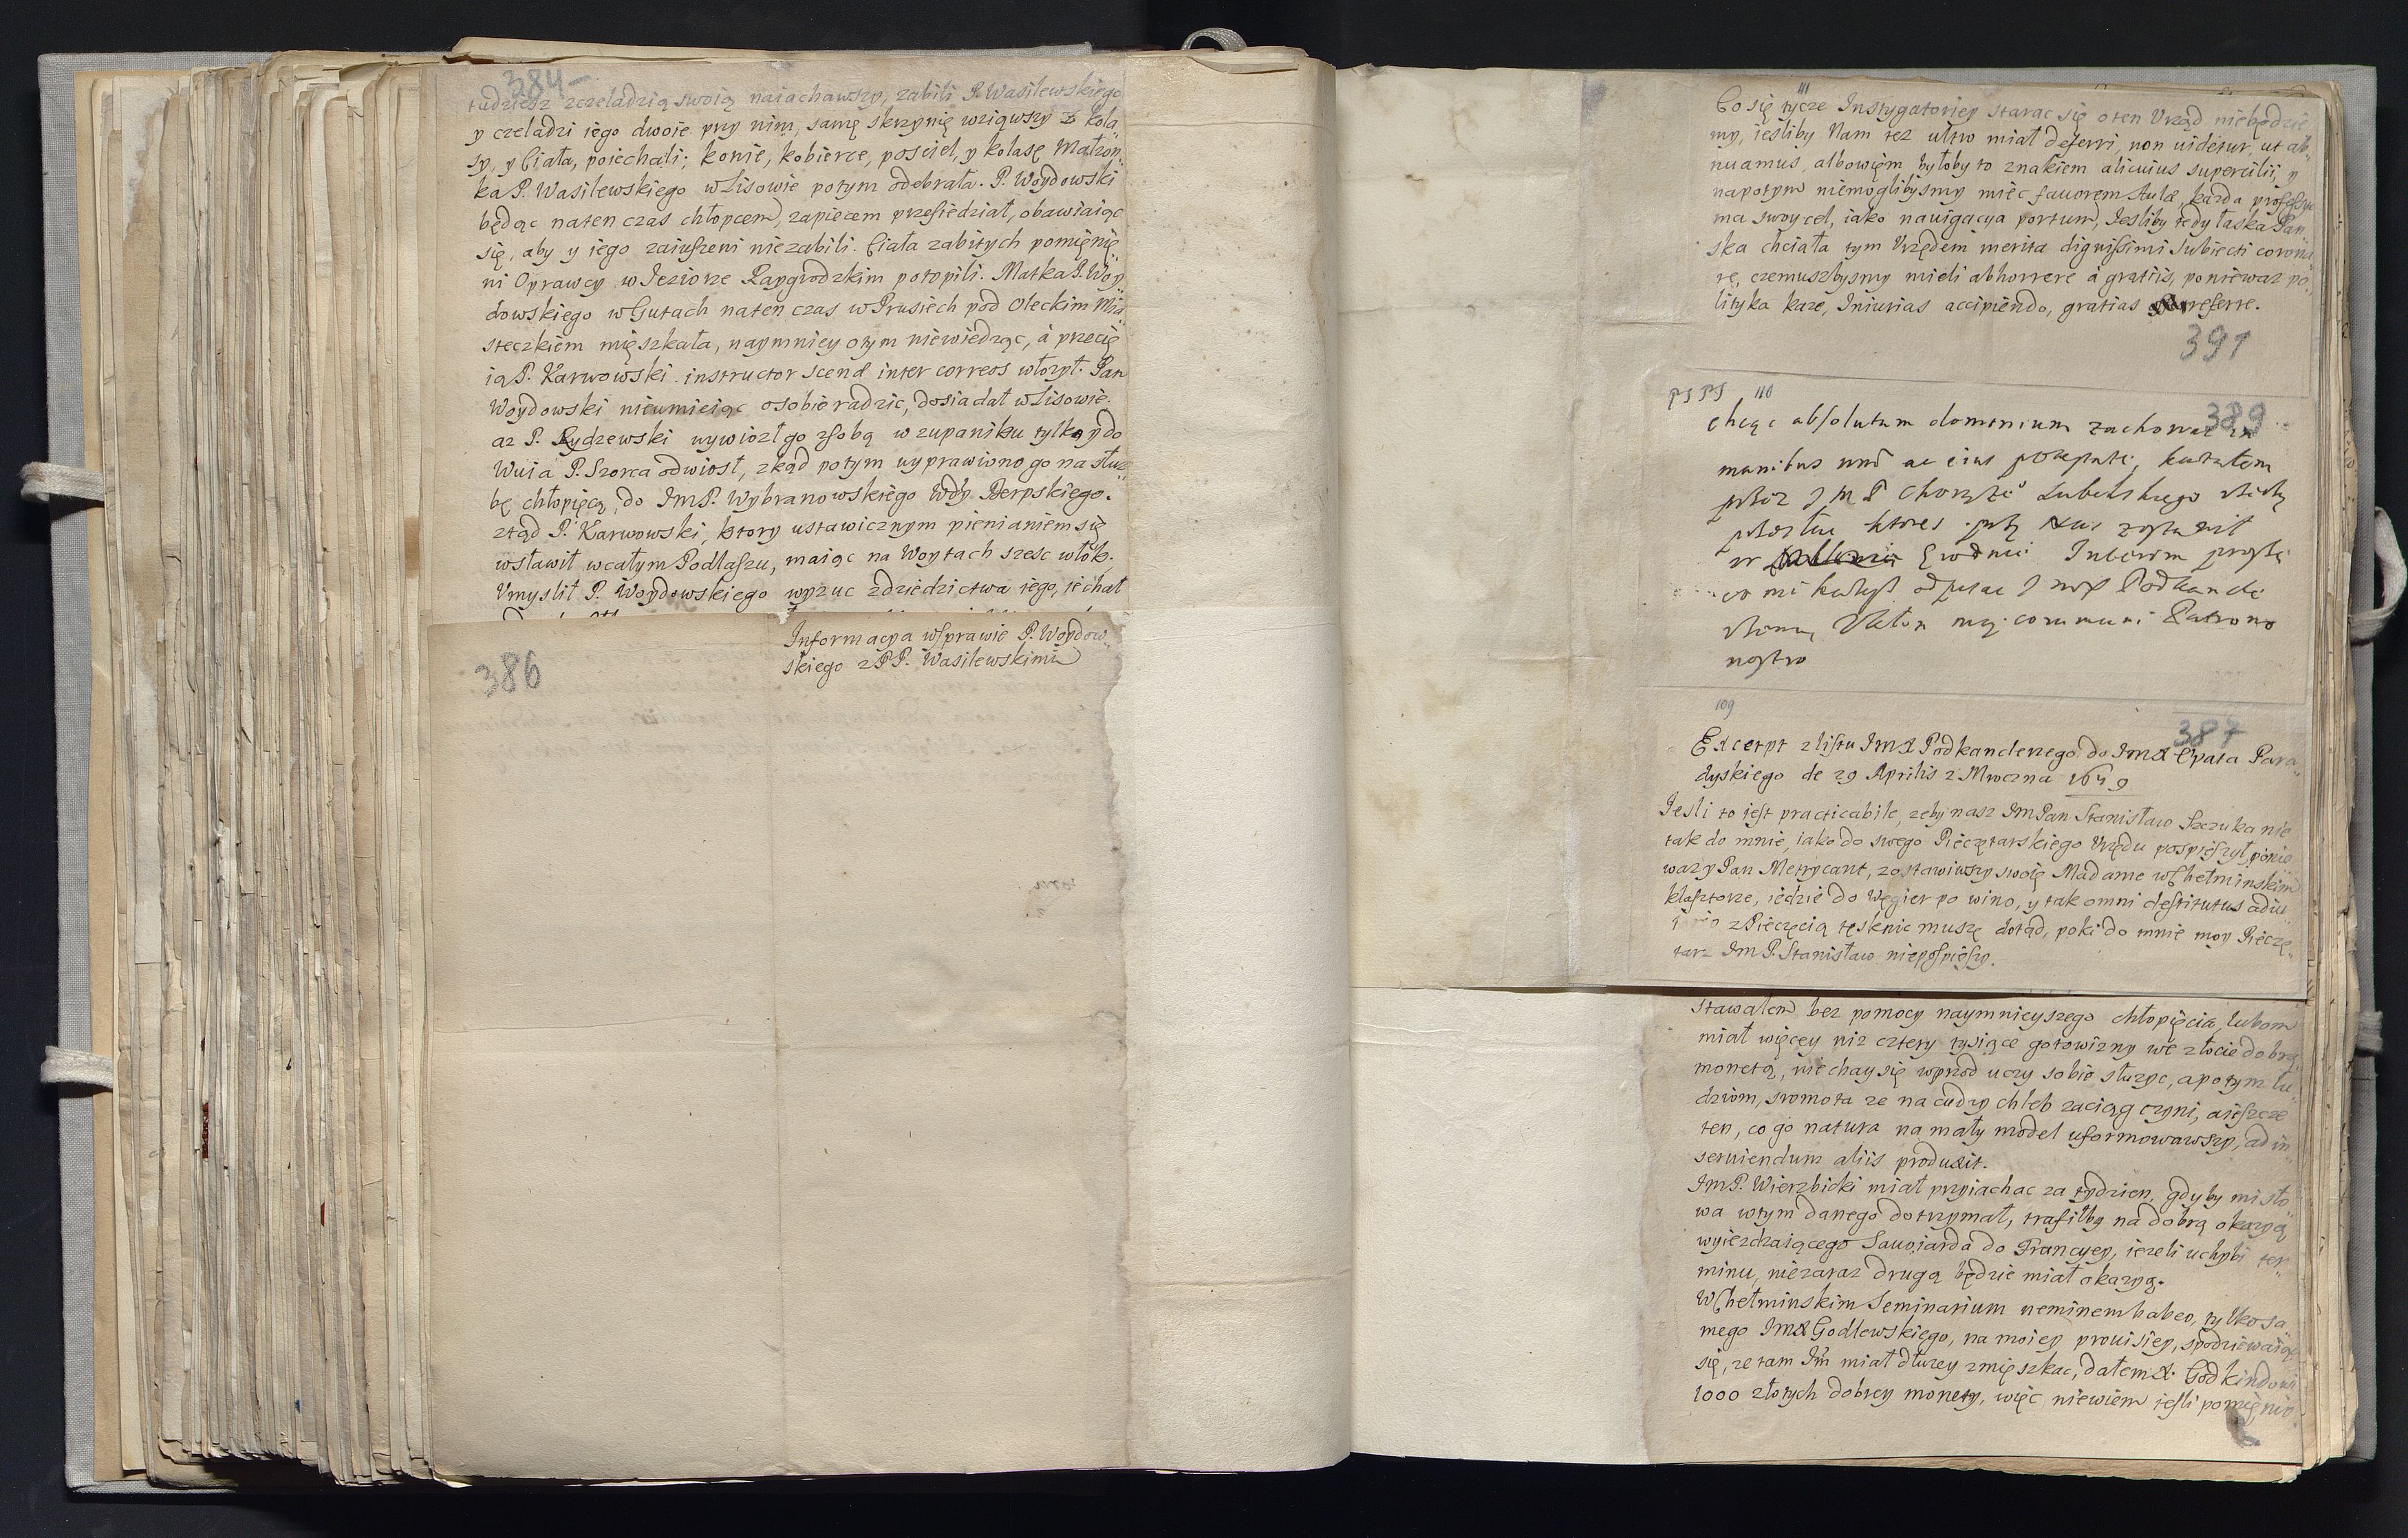 384
tudziesz zczeladzią swoią naiachawszy, zabili P. Wasilewskiego
y czeladzi iego dwoie przy nim, samę skrzynię wziąwszy z kola„
sy, y Ciała, poiechali; konie, kobierce, posciel, y kolasę Małżon„
ka P. Wasilewskiego w Lisowie potym odebrała. P. Woydowski
będąc naten czas chłopcem, zapiecem przesiedział, obawiaiąc
się, aby y iego zaiuszeni niezabili. Ciała zabitych pomięnię„
ni Oprawcy w Jeziorze Raygrodzkim potopili. Matka P. Woy„
dowskiego w Gutach naten czas w Prusiech pod Oleckim Mia„
steczkiem mięszkała, naymniey otym niewiedząc, á przecię
ią P. Karwowski instructor scenæ inter correos włożył. Pan
Woydowski nieumieiąc osobie radzic, dosiadał w Lisowie.
az P. Rydzewski wywiozł go zsobą w zupaniku tylko y do
Wuia P. Szorca odwiosł, zkąd potym wyprawiono go na słuz„
bę chłopięcą, do JmP. Wybranowskiego Wdy Derpskiego.
ztąd P. Karwowski, ktory ustawicznym pienianiem się
wsławił wcałym Podlaszu, maiąc na Woytach szesc włok,
Vmyslił P. Woydowskiego wyzuc zdziedzictwa iego, iechał
386
Informacya wsprawie P. Woydow„
skiego z PP. Wasilewskimi
111
Co się tycze Instygatoriey starac się oten Vrząd niebędzie„
my, iesliby Nam tez ultro miał deferri, non uidetur, ut ab„
nuamus, albowięm byłoby to znakiem alicuius supercilii, y
napotym niemoglibysmy miec fauorem Aulæ, kazda professya
ma swoy cel, iako nauigacya portum, Jesliby tedy łaska Pan„
ska chciała tym Vrzędem merita dignissimi Subiecti corona„
re, czemuszbysmy mieli abhorrere á gratiis, poniewaz po„
lityka kaze, Iniurias accipiendo, gratias referre.
391
110
389
chcąc absolutum dominium zachowac in
manibus
JMP Lubelskiego
communi Patrono
nostro
109
387
Excerpt zlistu JmX Podkanclerzego do JmX Opata Para„
dyskiego de 29 Aprilis z Mroczna
Jesli to iest practicabile, zeby nasz JmPan Stanisław Szczuka nie
tak do mnie, iako do swego Pieczętarskiego Vrzędu pospieszył, ponie
waz y Pan Metrycant, zostawiwszy swoię Madame w Chełminskim
klasztorze, iedzie do Węgier po wino, y tak omni destitutus adiu„
zPieczęcią tęsknic muszę dotąd, poki do mnie moy Pieczę„
tarz JmP. Stanisław niepospieszy.
stawałem bez pomocy naymnieyszego chłopięcia, lubom
miał więcey niz cztery tysiące gotowizny we złocie dobrą
monetą, niechay się wprzod uczy sobie słuzyc, apotym lu„
dziom, sromota ze na cudzy chleb zaciąg czyni, aieszcze
ten, co go natura na mały model uformowawszy, ad in„
seruiendum aliis produxit.
JmP. Wierzbicki miał przyiachac za tydzien, gdyby mi sło„
wa wtym danego dotrzymał, trafiłby na dobrą okazyą
wyiezdzaiącego Sauoiarda do Francyey, iezeli uchybi ter„
minu, niezaraz drugą będzie miał okazyą.
W Chełminskim Seminarium neminem habeo, tylko sa„
mego JmX Godlewskiego, na moiey prouisiey, spodziewaiąc
się, ze tam Jm miał dłuzey zmięszkac, dałem X. Godkindowi
1000 złotych dobrey monety, więc niewiem iesli pomięnio„